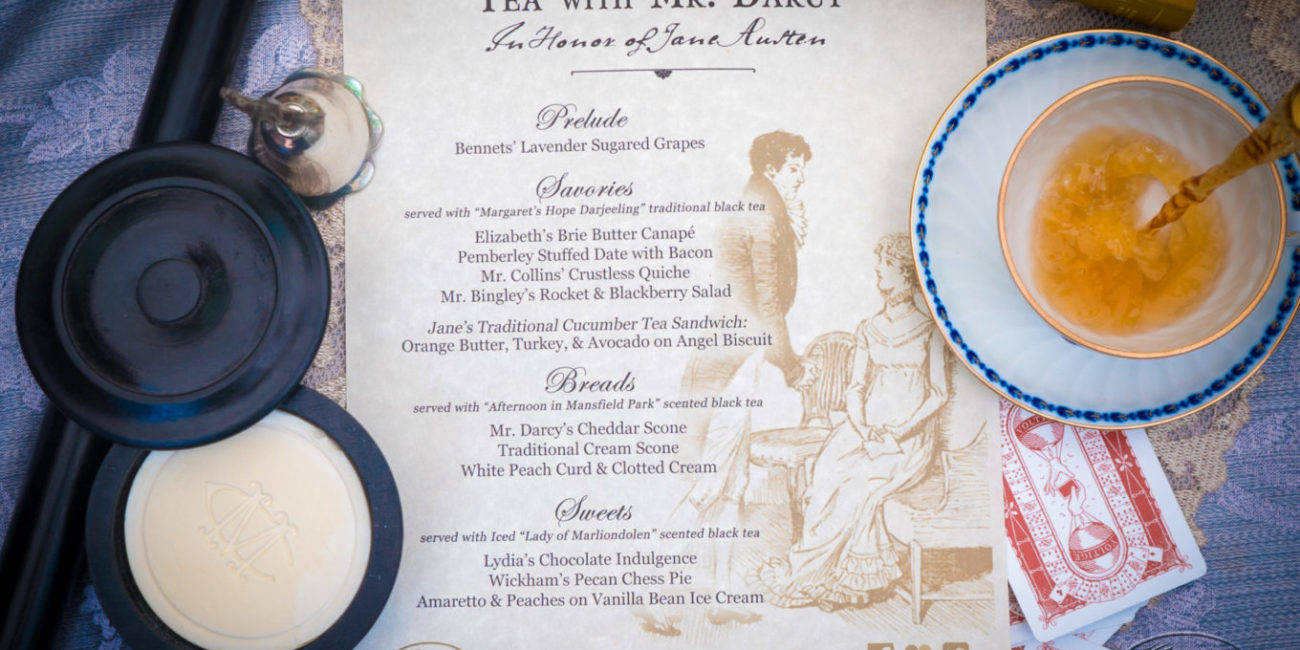 TEA WITH MR. DARCY
In Honor of Jane Austen
Prelude
Bennets' Lavender Sugared Grapes
Savories
served with "Margaret's Hope Darjeeling" traditional black tea
Elizabeth's Brie Butter Canapé
Pemberley Stuffed Date with Bacon
Mr. Collins' Crustless Quiche
Mr. Bingley's Rocket & Blackberry Salad
Jane's Traditional Cucumber Tea Sandwich:
Orange Butter, Turkey, & Avocado on Angel Biscuit
Breads
served with "Afternoon in Mansfield Park" scented black tea
Mr. Darcy's Cheddar Scone
Traditional Cream Scone
White Peach Curd & Clotted Cream
Sweets
served with Iced "Lady of Marliondolen" scented black tea
Lydia's Chocolate Indulgence
Wickham's Pecan Chess Pie
Amaretto & Peaches on Vanilla Bean Ice Cream
VOLTIGE
VOLTIGE